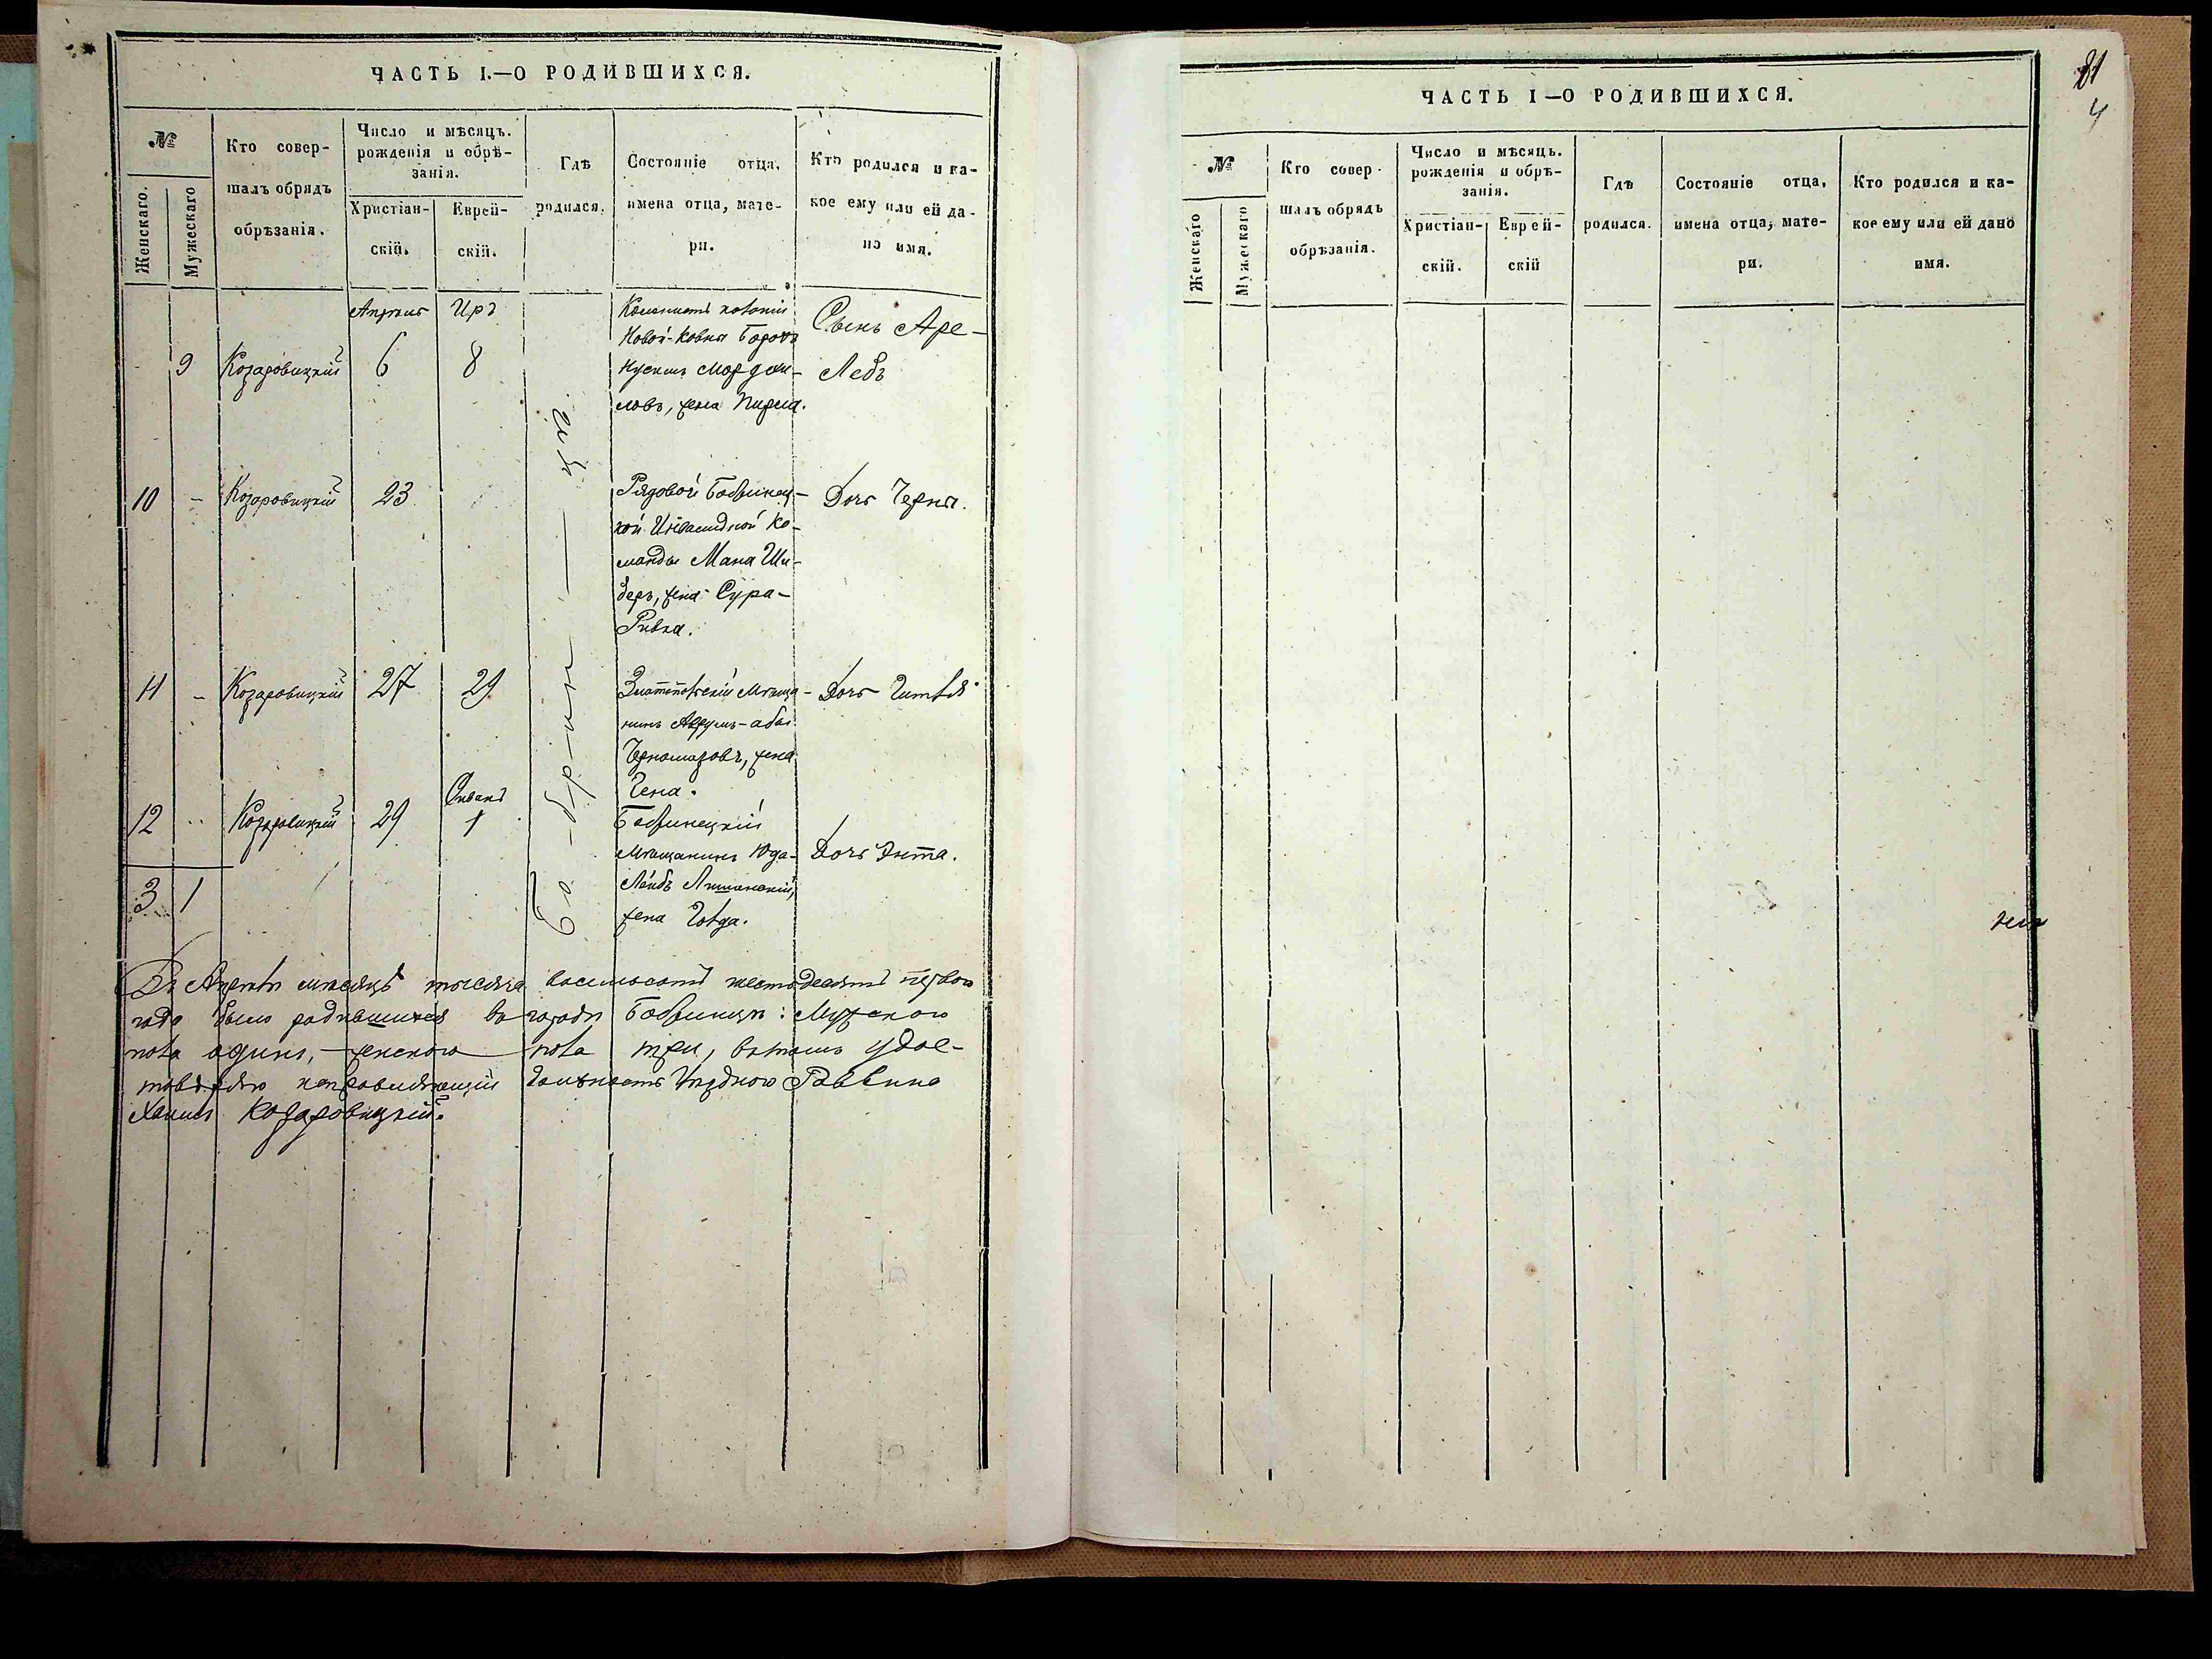 ЧАСТЬ I.—О РОДИВШИХСЯ.
№
Женскаго.
Мужескаго
Кто совер-
шалъ обрядъ
обрѣзанія.
Число и мѣсяцъ.
рожденія и обрѣ-
занія.
Христіан-
скій.
Еврей-
скій.
Гдѣ
родился.
Состояніе отца,
имена отца, мате-
ри.
Кто родился и ка-
кое ему или ей да-
но имя.
Апрѣля
Иръ
9
Козаровицкій
6
8
Колонистъ колоніи
Новой-Ковна
Мордки-
ловъ, жена
Сынъ Аре-
Лебъ
10 -
Козаровицкій
23
Рядовой Бобринец-
кой Инвалидной Ко-
манды Мана Ши-
беръ, жена Сура-
Ривка.
Дочь Черна.
11 -
Козаровицкій
27
29
Златопольскій Мѣща-
нинъ Аврумъ-аба
Черномазовъ, жена
Гена.
Дочь Гитля
12
Козаровицкій
29
Сивана
1
Бобринецкій
Мѣщанинъ Юда-
Лейбъ
жена Голда.
Дочь Энта.
3 1
Во -бр-ин- —
Въ Апрелѣ мѣсяцѣ тысяча восемьсотъ шестьдесятъ перваго
года было родившихся въ городѣ Бобринцѣ: Мужскаго
пола одинъ, женскаго пола три, въ томъ удос-
товѣряю исправляющій должность Уѣзднаго Раввина
Хаимъ Козаровицкій.
ЧАСТЬ I—О РОДИВШИХСЯ.
№
Женскаго
Мужескаго
Кто совер-
шалъ обрядъ
обрѣзанія.
Число и мѣсяцъ.
рожденія и обрѣ-
занія.
Христіан-
скій.
Еврей-
скій
Гдѣ
родился.
Состояніе отца,
имена отца, мате-
ри.
Кто родился и ка-
кое ему или ей дано
имя.
4